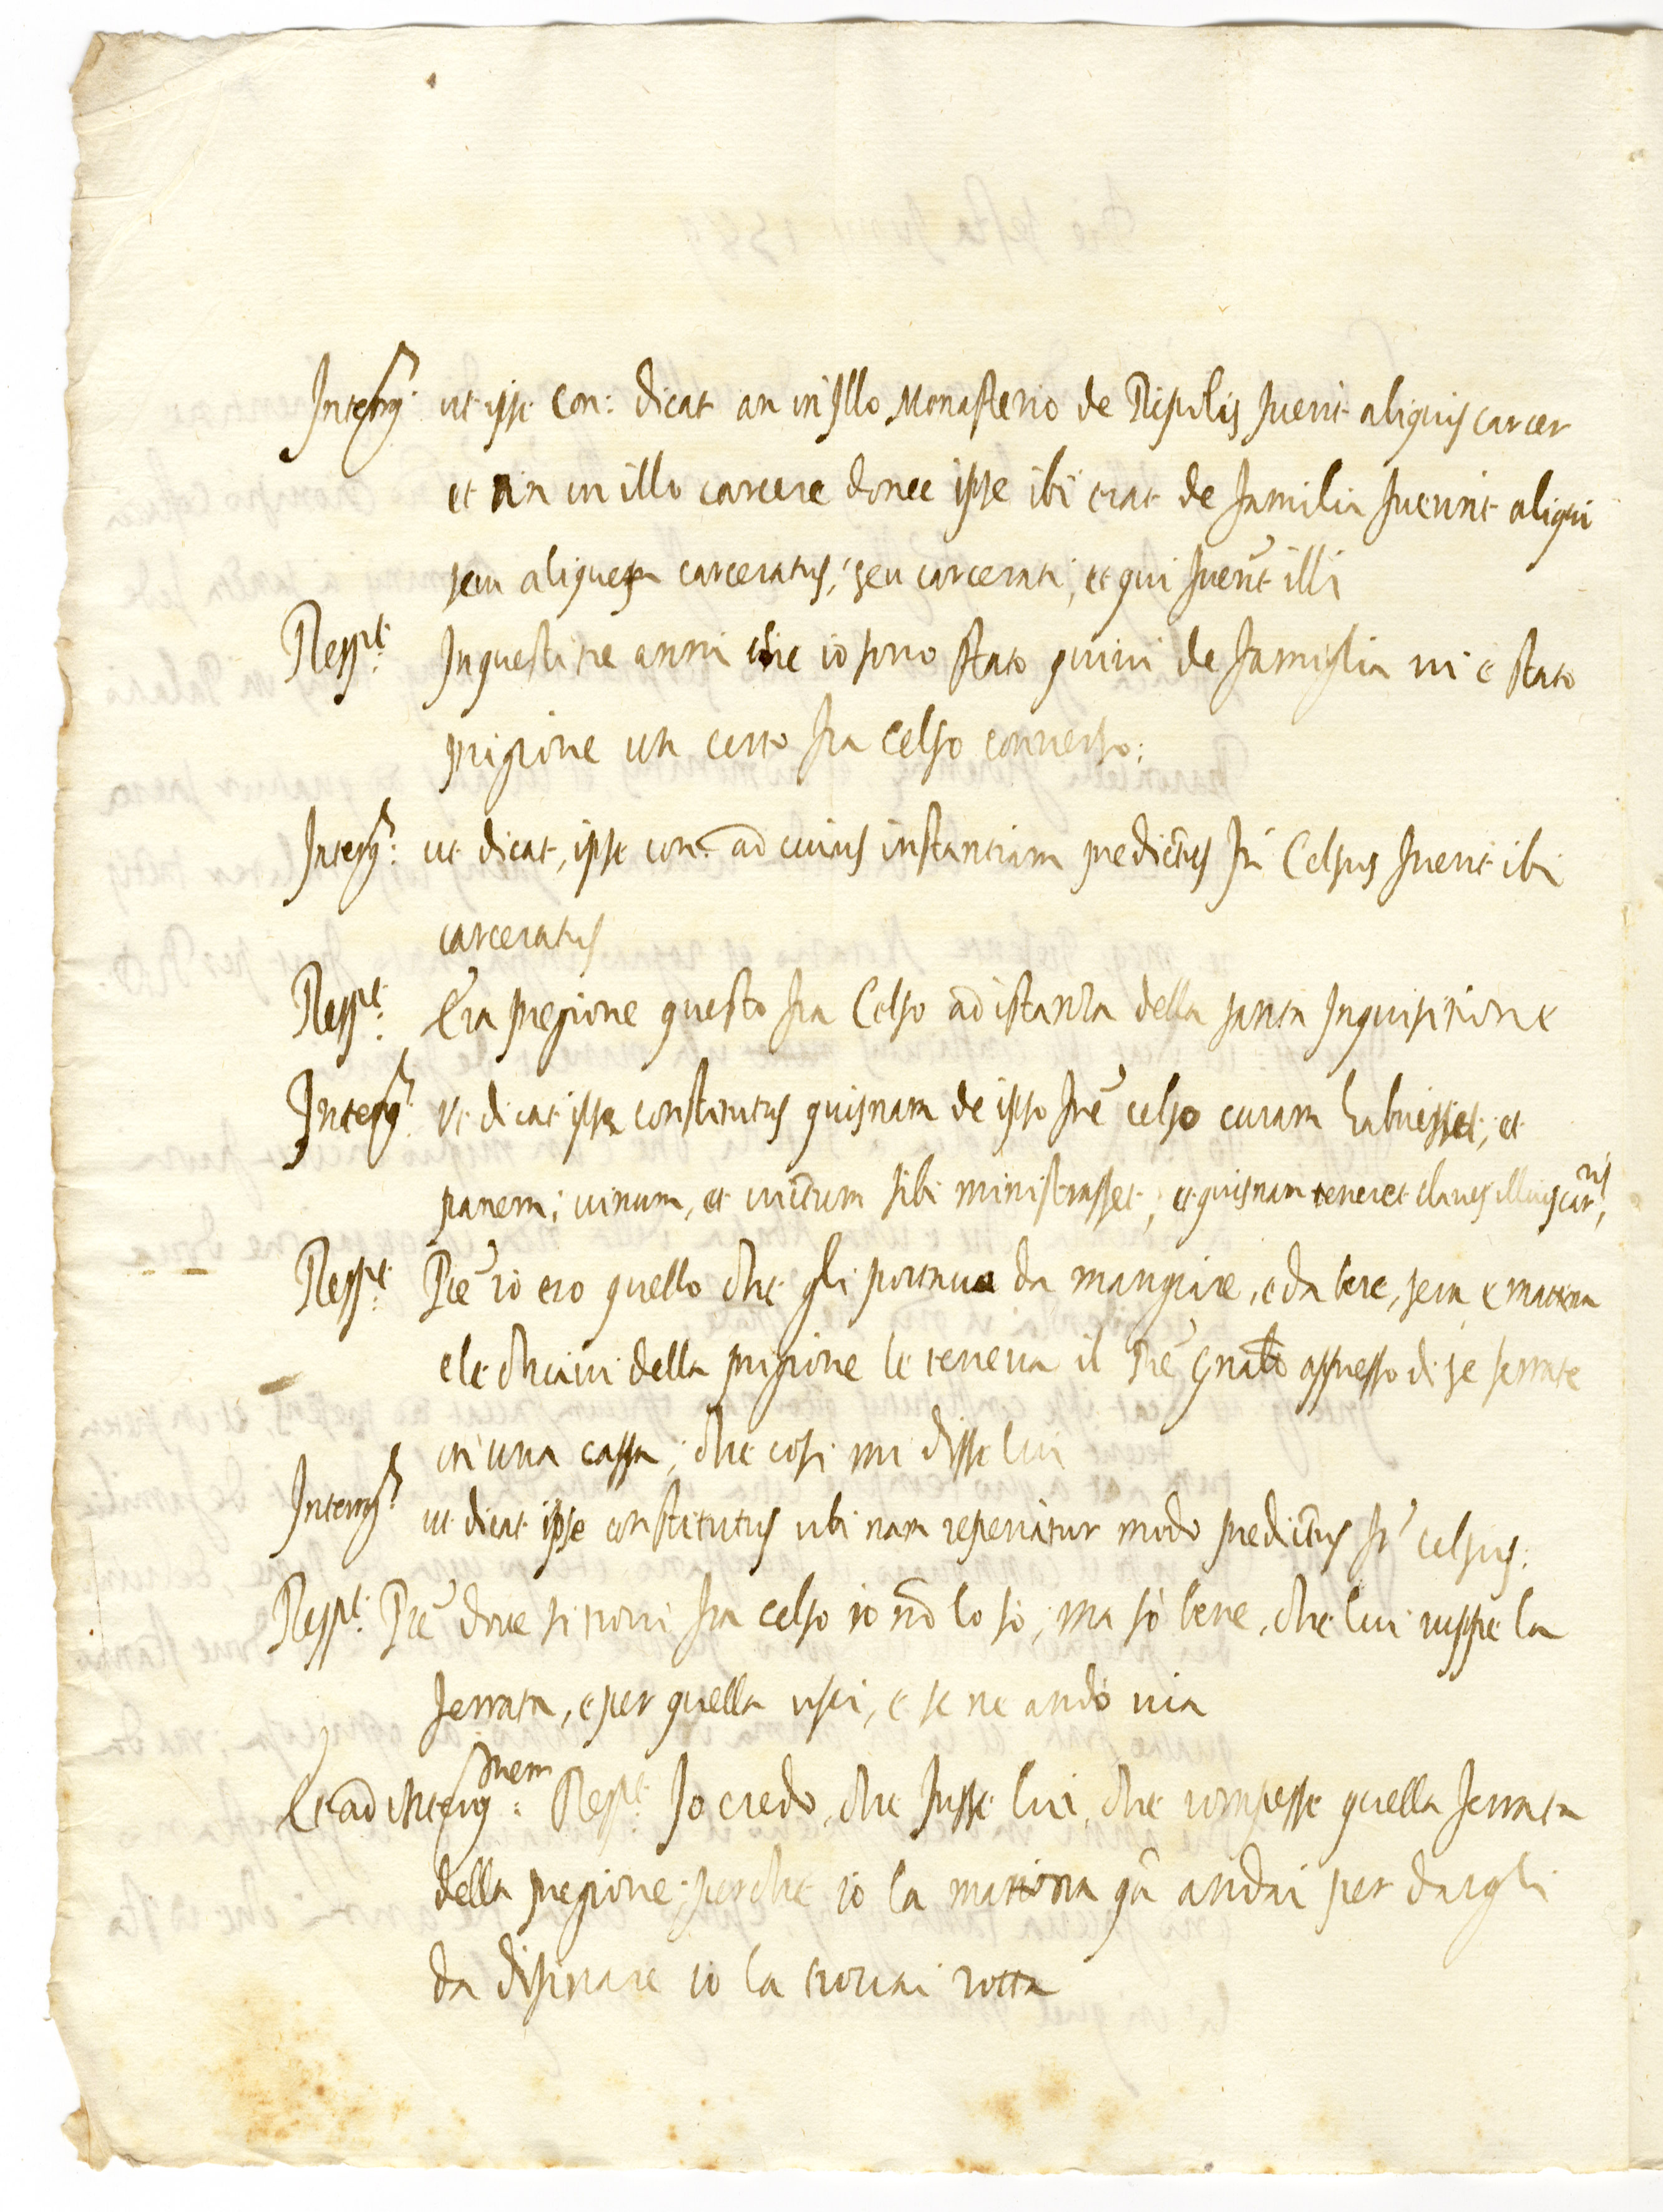 Interrg: ut ipse Con: dicat an in Illo Monasterio de Ripolis fuerit aliquis carcer
et an in illo carcere donec ipse ibi erat de familia fuerint aliqui
seu aliquis carceratus, seu carcerati, et qui fuerūt illi
Respt: In questi tre anni che io sono stato quivi de famiglia vi è stato
prigione un certo fra Celso converso:
Interrg: ut dicat, ipse con: ad cuius instantiam predictus fr̄ Celsus fuerit ibi
carceratus
Respt: Era pregione questo fra Celso ad istanza della santa Inquisitione
Interrg: Ut dicat ipse constitutus quisnam de ipso frē celso curam habuisset, et
panem, vinum, et victum sibi ministrasset, et quisnam teneret claves illius carris,
Respt: Prē io ero quello che gli portava da mangiare, e da bere, sera e mattina
e le chiavi della prigione le teneva il Prē appresso di se serrate
in una cassa, che cosi mi disse lui
Interrg: ut dicat ipse constitutus ubi nam reperiatur modo predictus fr̄ celsus:
Respt: Prē dove si trovi fra celso io nō lo so, ma sò bene, che lui ruppe la
ferrata, e per quella usci, e se ne andò via
Et ad interrg:nem Respt: Io credo, che fusse lui, che rompesse quella ferrata
della pregione, perche io la mattina qn̄ andai per dargli
da disinare io la trovai rotta